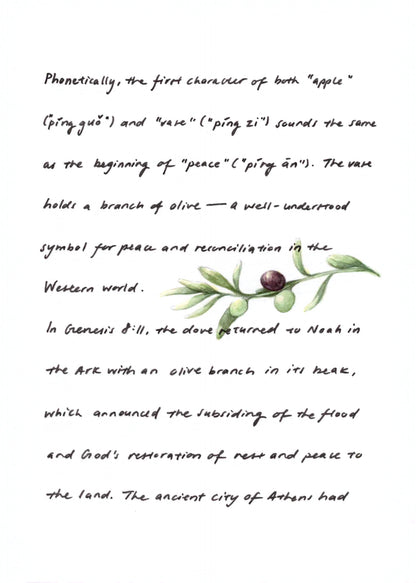 Phonetically, the first character of both "apple"
("píng guǒ") and "vase" ("píng zi") sounds the same
as the beginning of "peace" ("píng ān"). The vase
holds a branch of olive — a well-understood
symbol for peace and reconciliation in the
Western world.
In Genesis 8:11, the dove returned to Noah in
the Ark with an olive branch in its beak,
which announced the subsiding of the flood
and God's restoration of rest and peace to
the land. The ancient city of Athens had